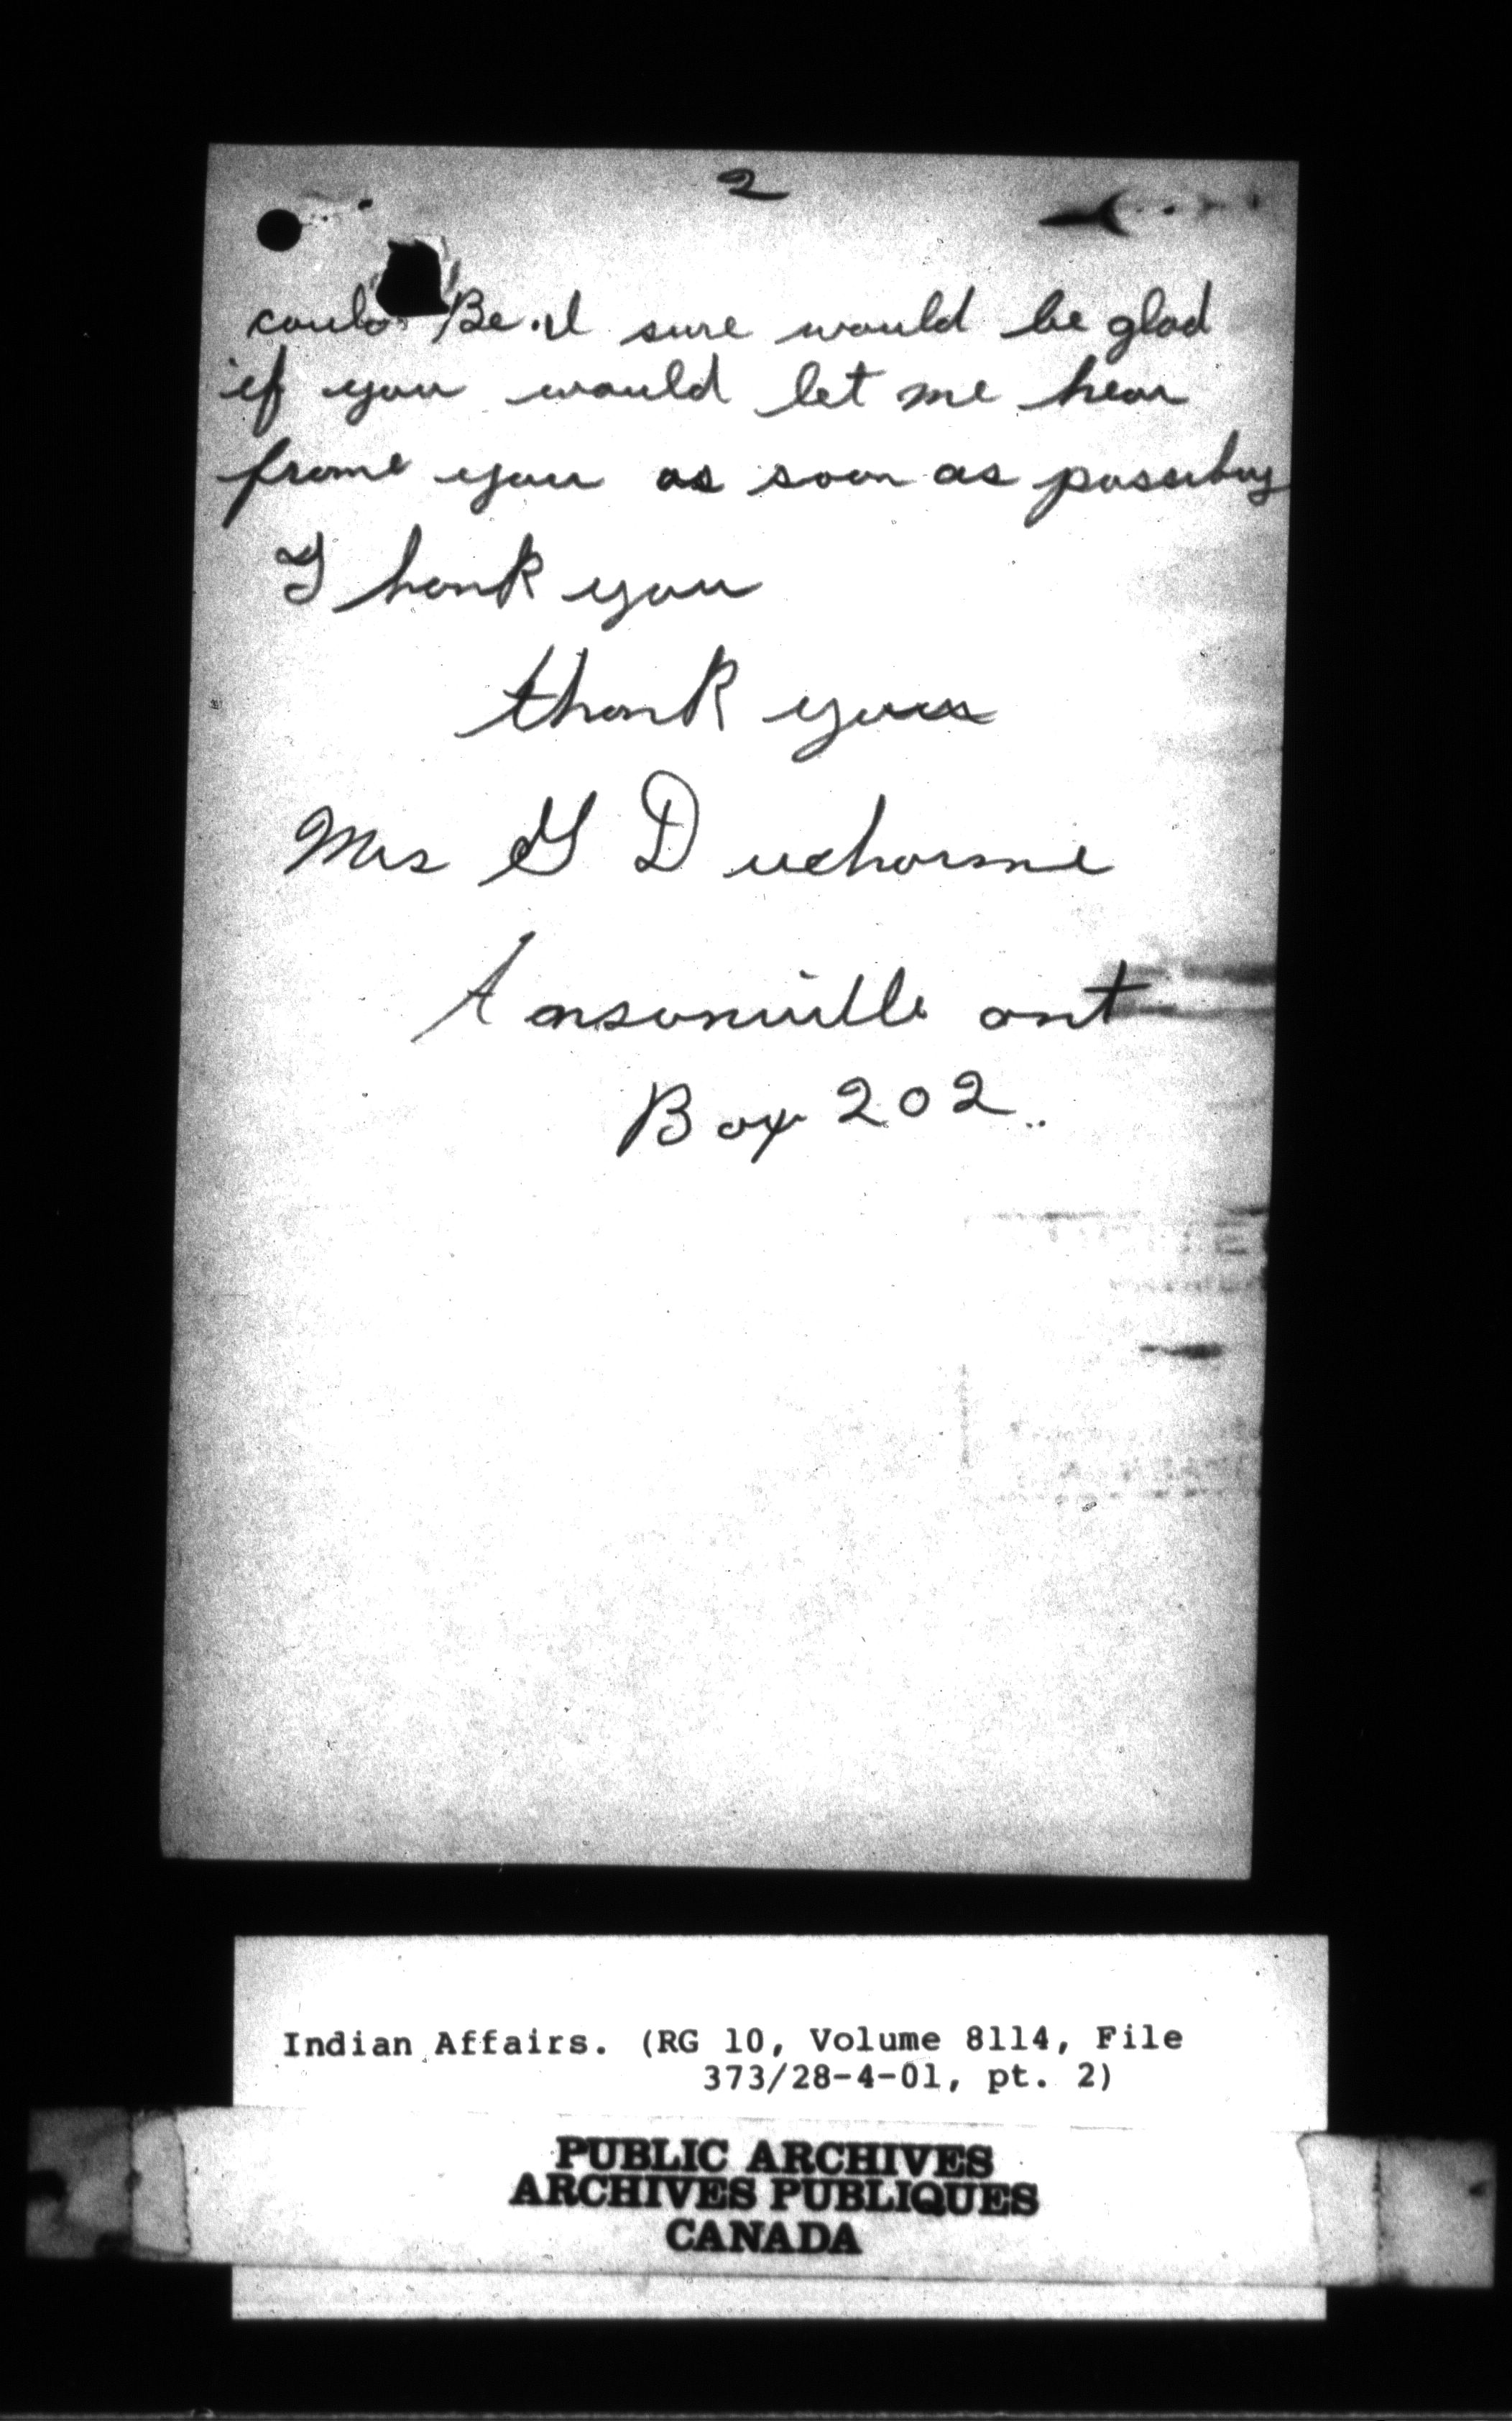 2
could Be. I sure would be glad
if you would let me hear
frome you as soon as possibuy
Thank you
thank you
Mrs G Ducharme
Ansonville ont
Box 202..
Indian Affairs. (RG 10, Volume 8114, File
373/28-4-01, pt. 2)
PUBLIC ARCHIVES
ARCHIVES PUBLIQUES
CANADA